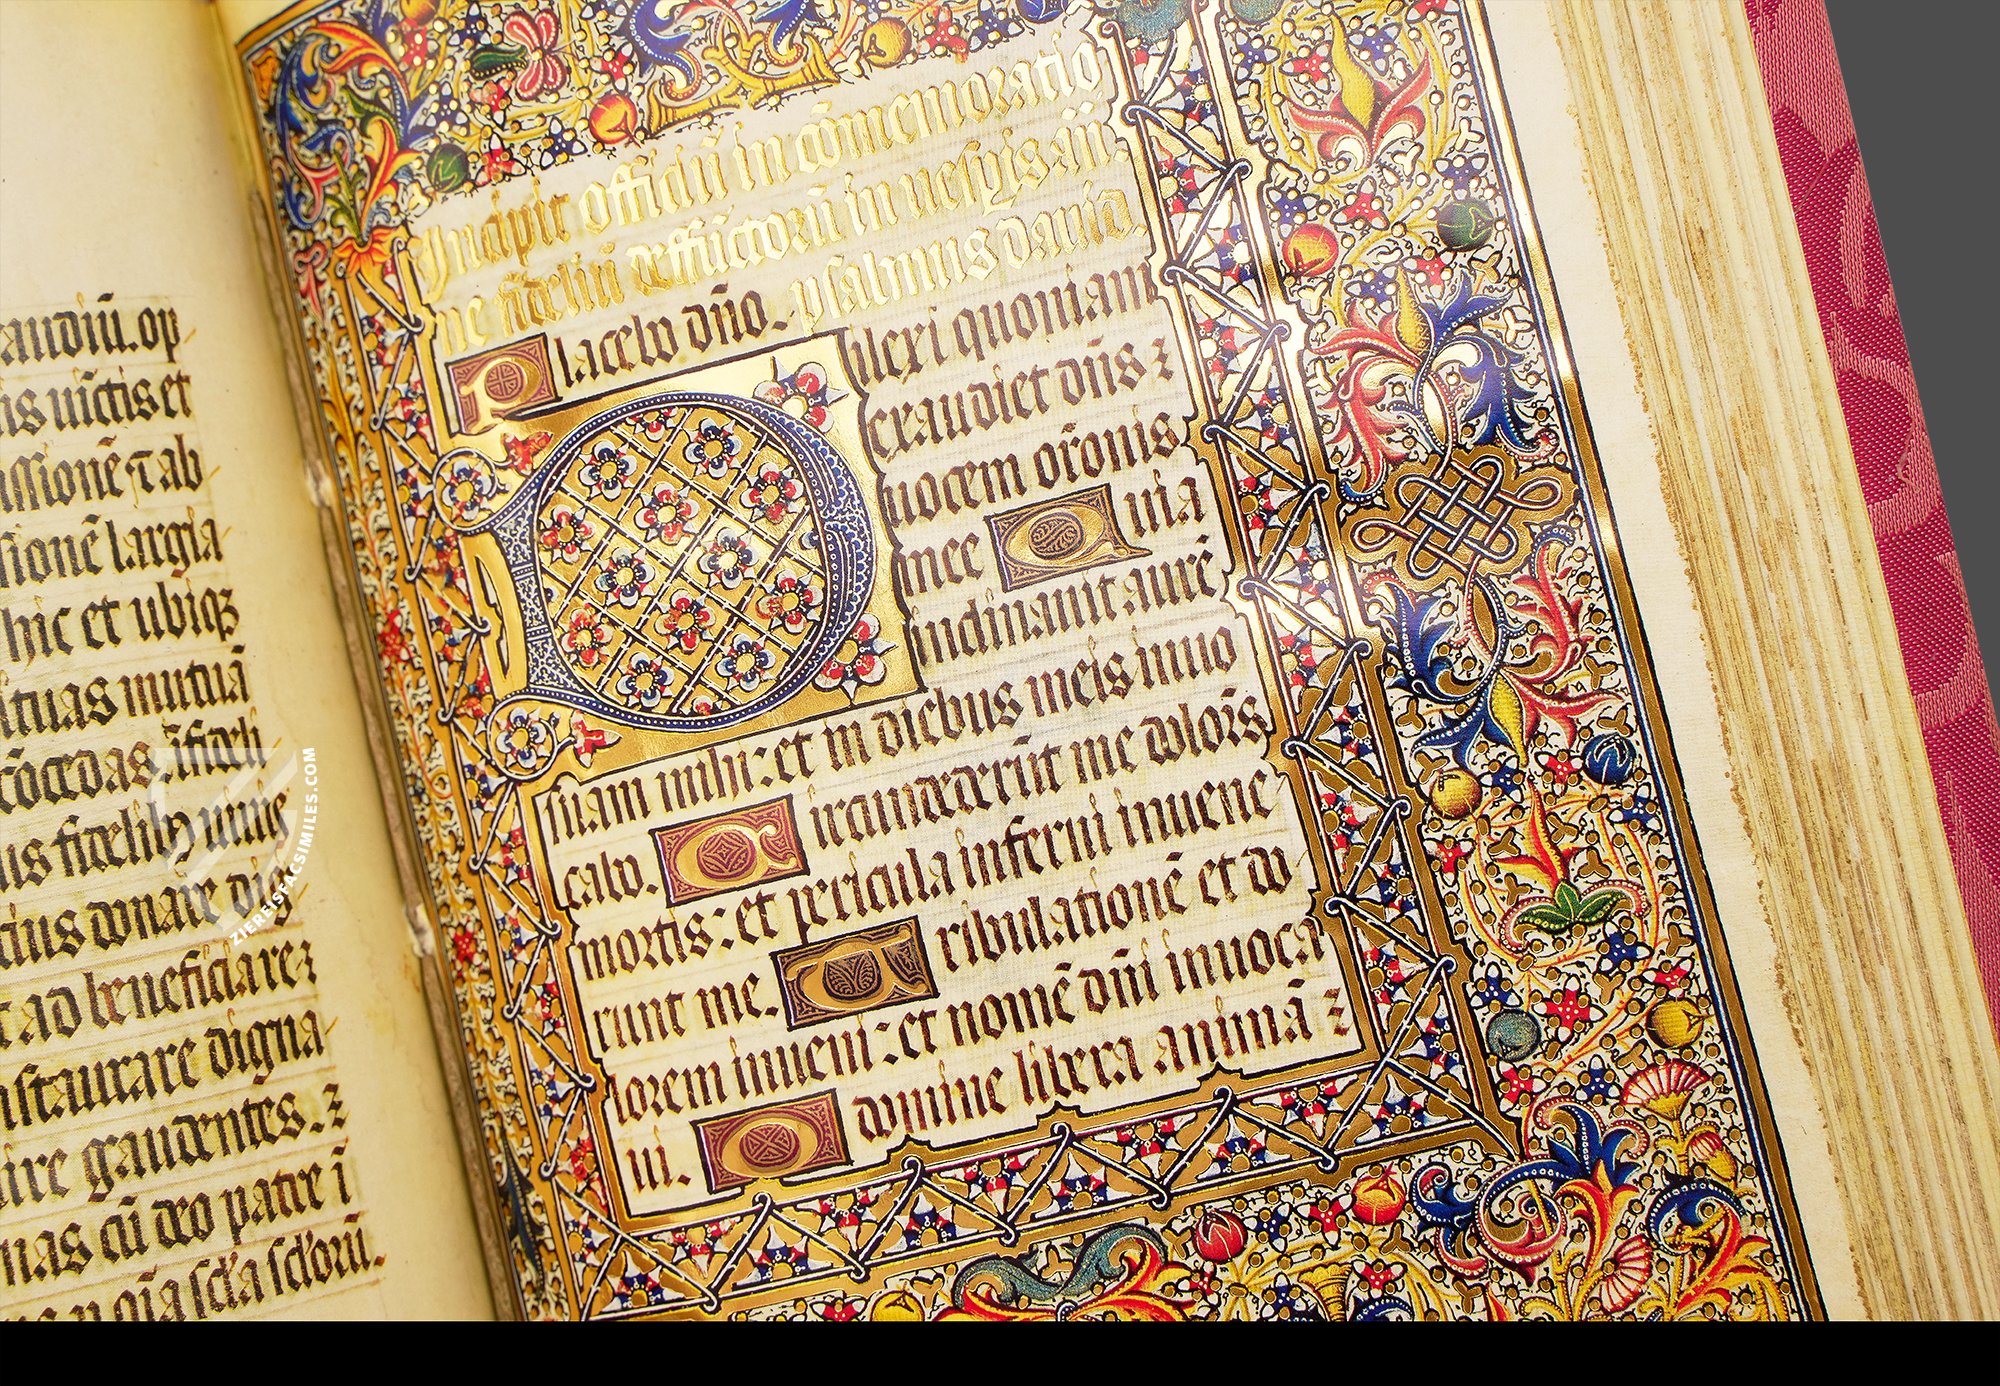 audiū. op
is uīctis et
ssionē τ ab
sionē largia
hic et ubiqꝫ
ituas mutuā
cōcedas. īfideli
us fidelibꝫ uiuis
cius donare dig
t ad beneficiareꝛ
nstaurare digna
ire gaudentes. ꝛ
nas cū deo patre ī
oīa scła scłorū.
Incipit Officiū in cōmemoratio
ne fideliū deffūctorū in uesp̱is. añ.
Placebo dño. psalmus dauid.
Dilexi quoniam
exaudiet dñs ꝛ
uocem or̄onis
mee Quia
inclinauit aurē
suam mihi: et in diebus meis inuo
cabo. Circundederūt me dolor̄s
mortis: et pericula inferni inuene
runt me. Tribulationē et do
lorem inueni: et nomē dñi inuoca
ui. O domine libera animā ꝛ
ZIEREISFACSIMILES.COM